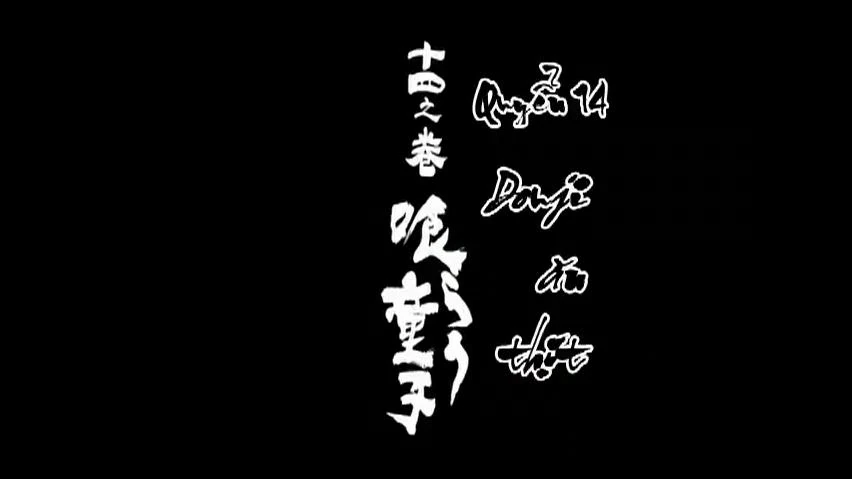 十四之巻
喰らう童子
Quyển 14
Donji
ăn
thịt